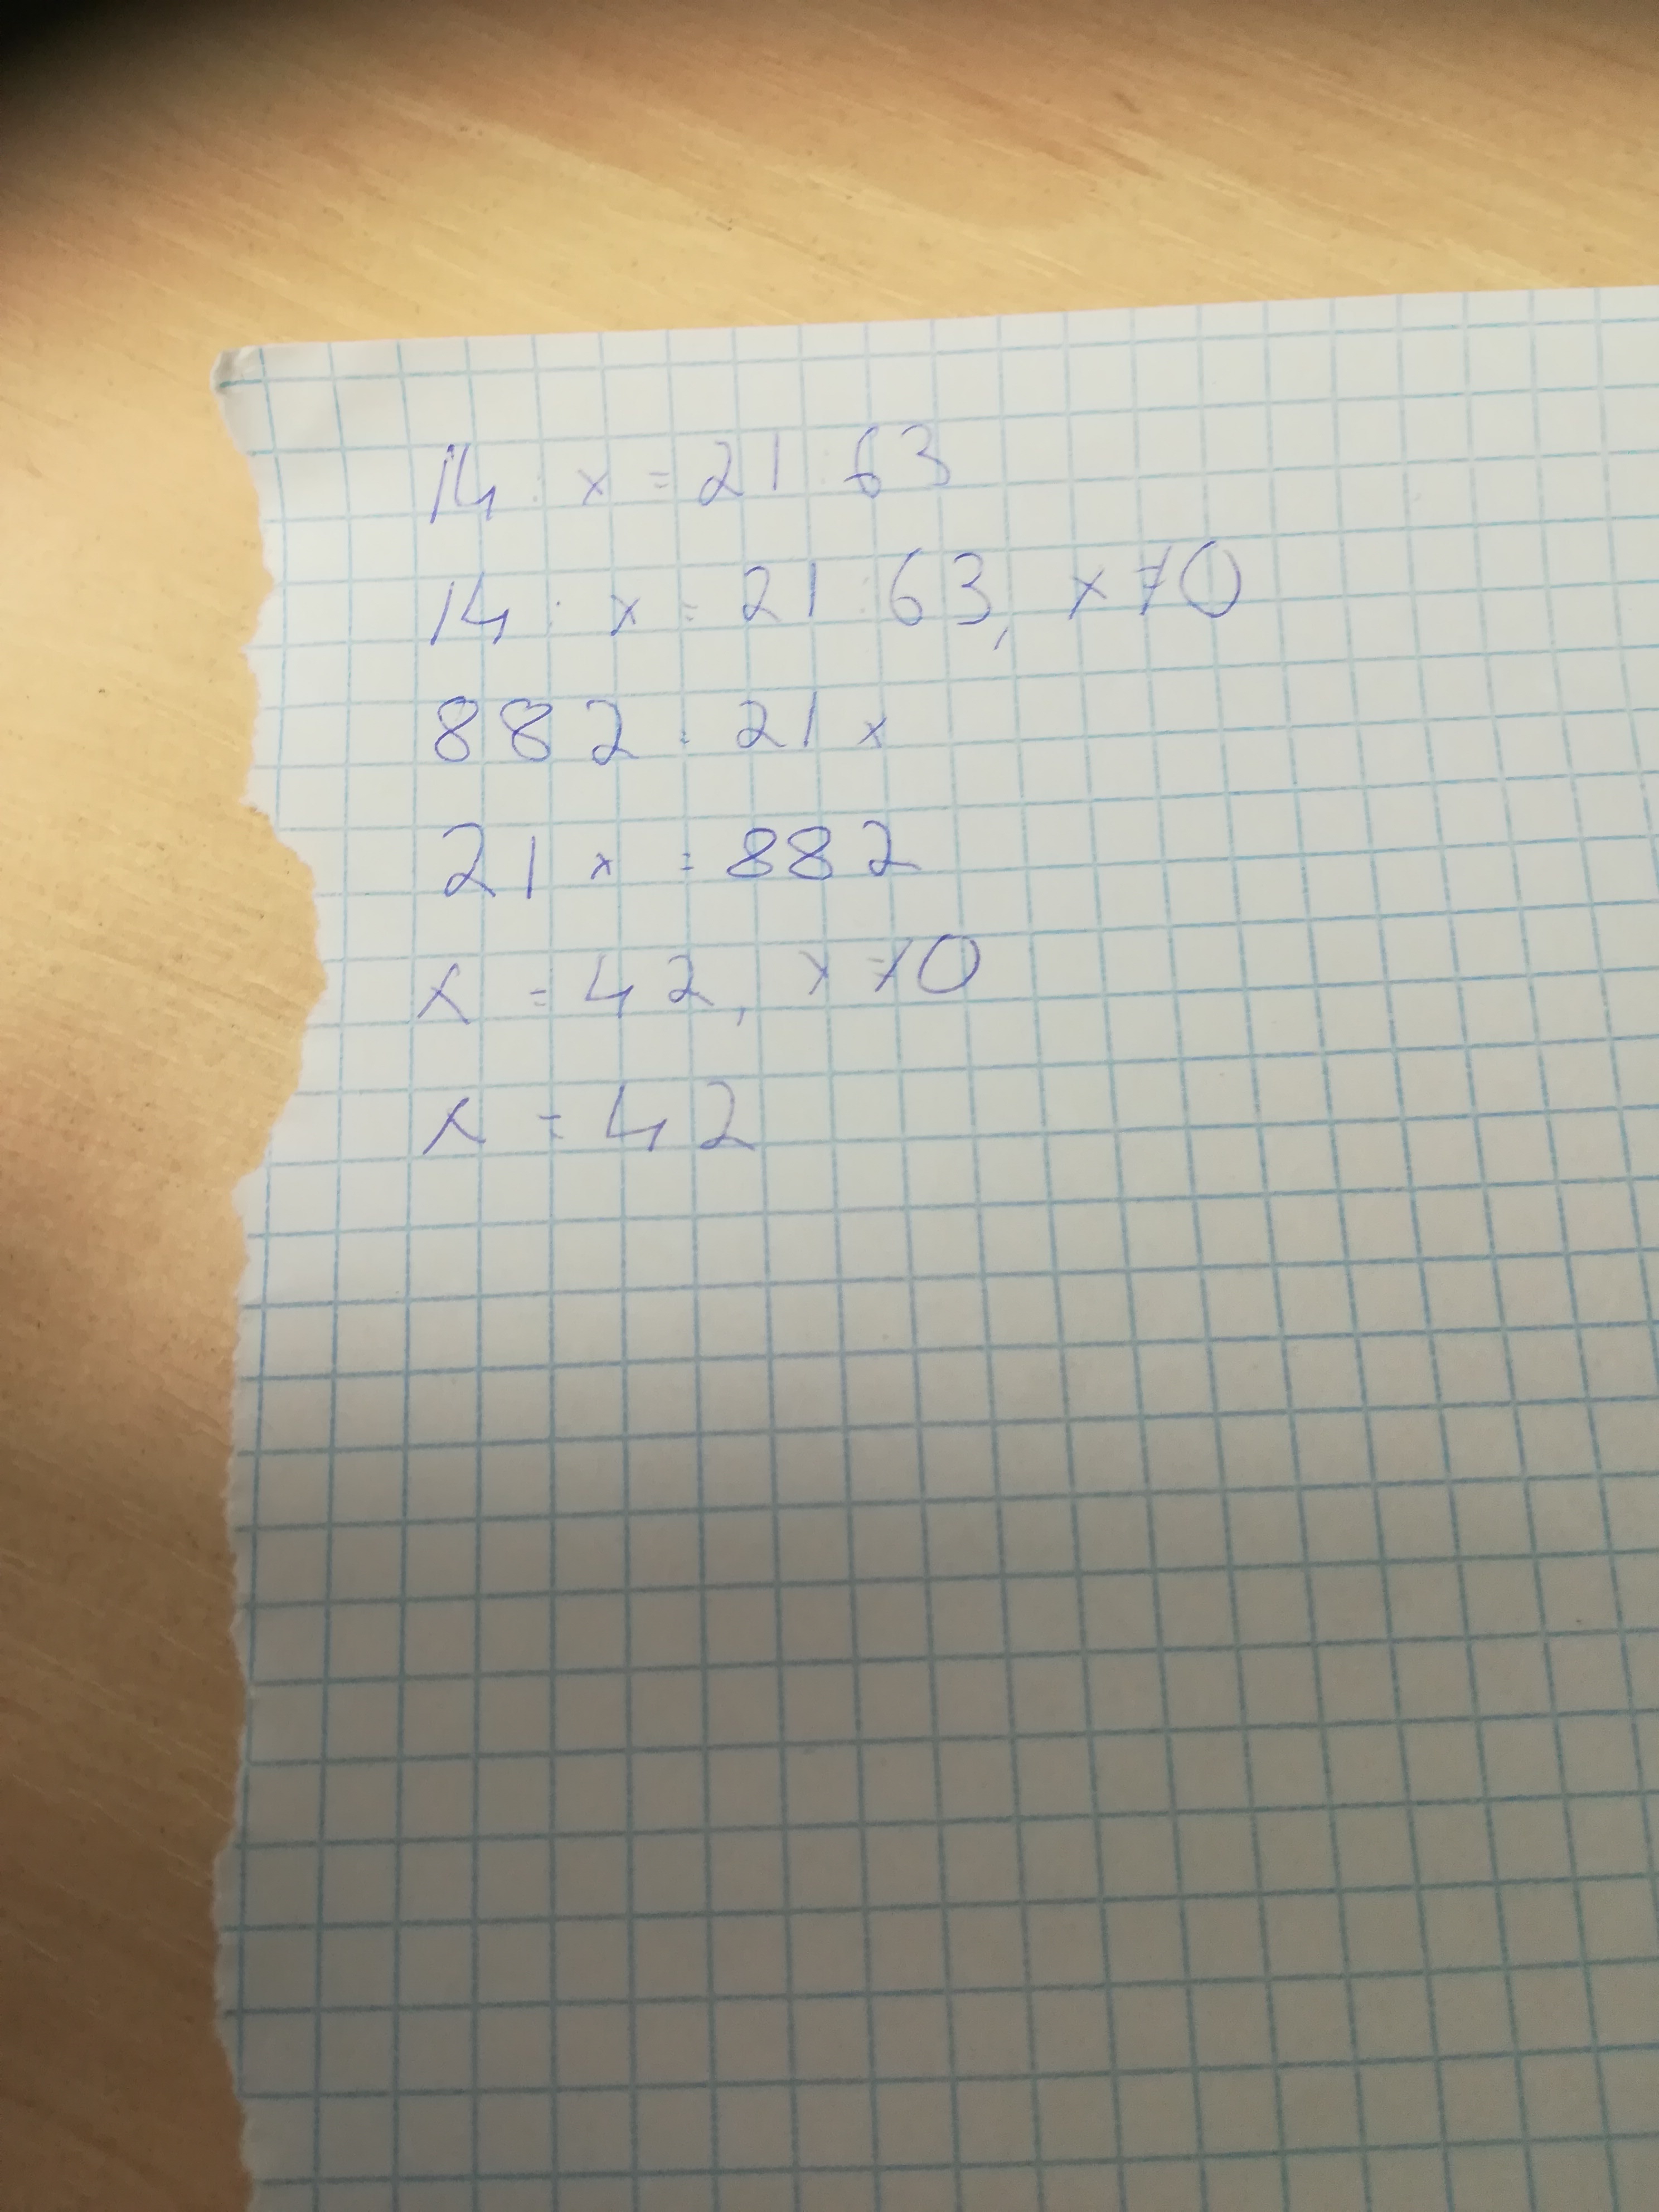 14 : x = 21 : 63
14 : x = 21 : 63, x ≠ 0
882 = 21 x
21 x = 882
x = 42, x ≠ 0
x = 42